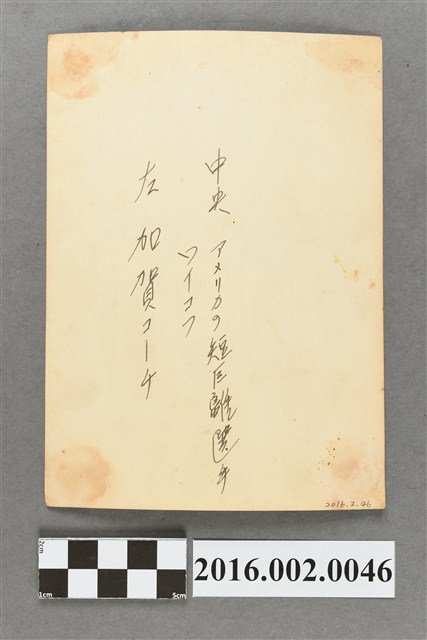 中央 アメリカの短巨離選手
ワイコフ
左 加賀コーチ
2016.2.46
2cm
1cm
5cm
2016.002.0046